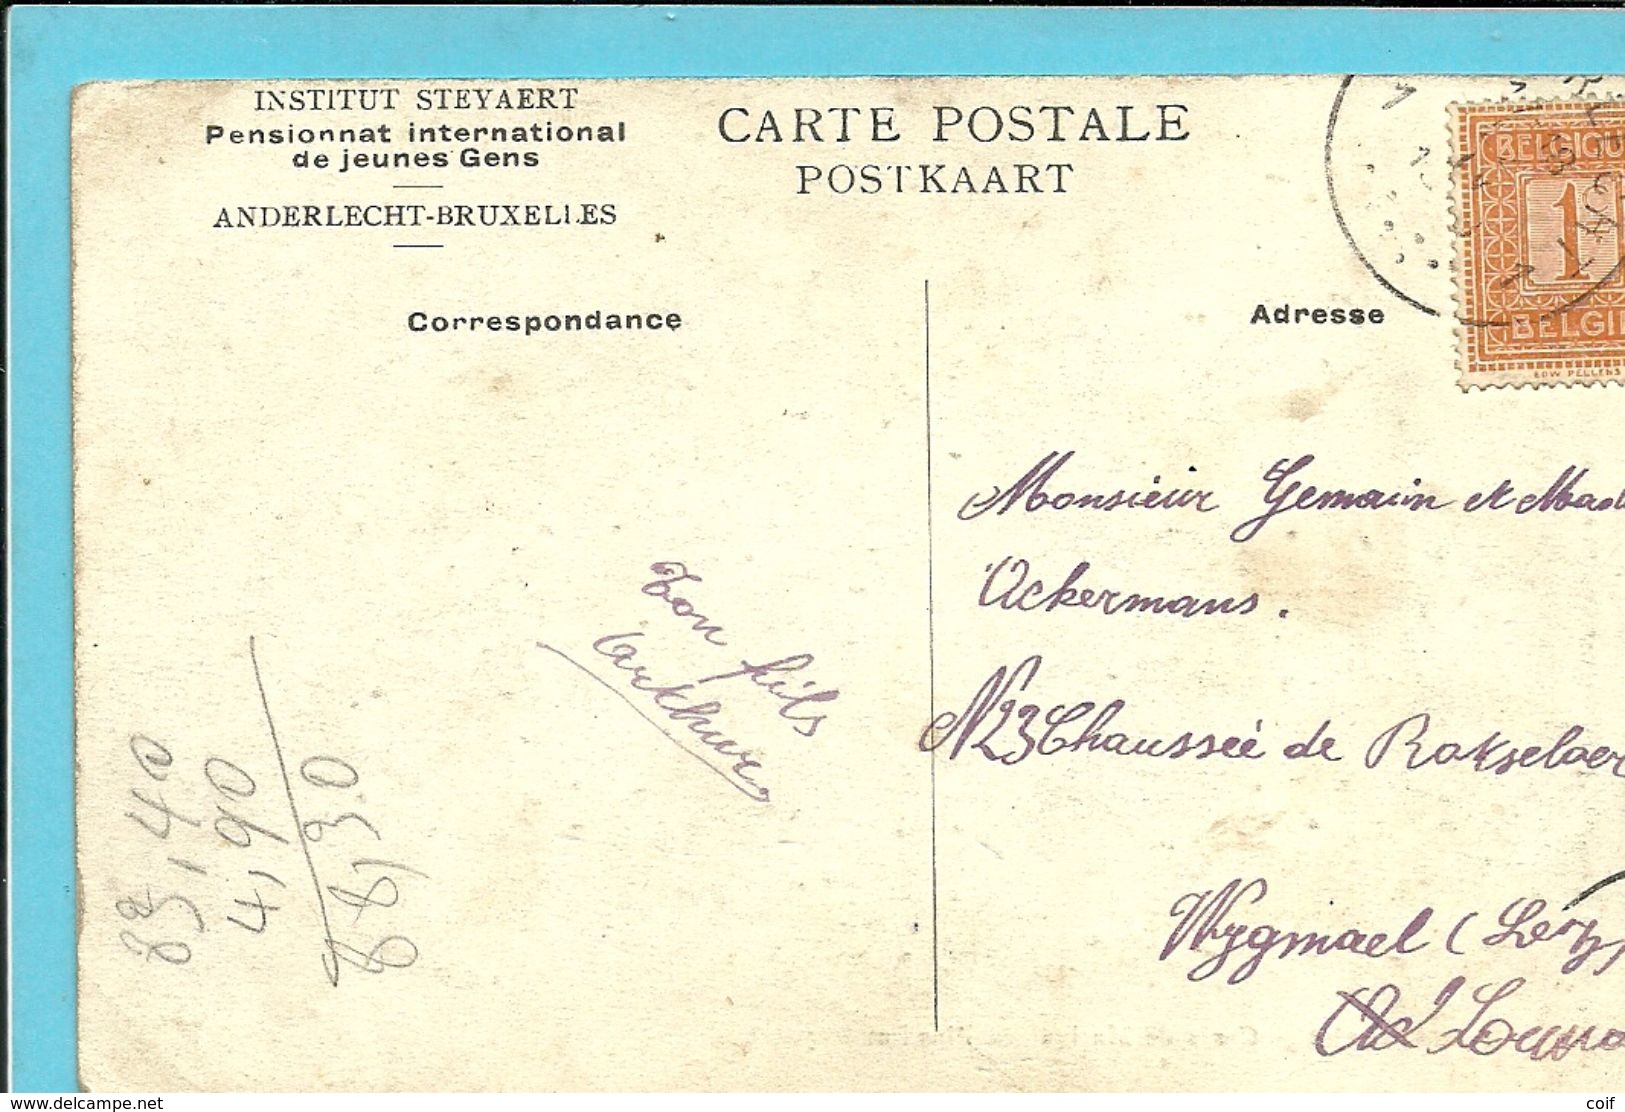 INSTITUT STEYAERT
Pensionnat international
de jeunes Gens
ANDERLECHT-BRUXELLES
CARTE POSTALE
POSTKAART
Correspondance
Adresse
BELGIQUE
1
BELGIË
EDW PELLENS
Monsieur Gemain et Mad
Ackermans.
N23 Chaussée de Rotselaer
Wygmael (
Ton fils
Arthur
83,40
4,90
88,30
www.delcampe.net
coif